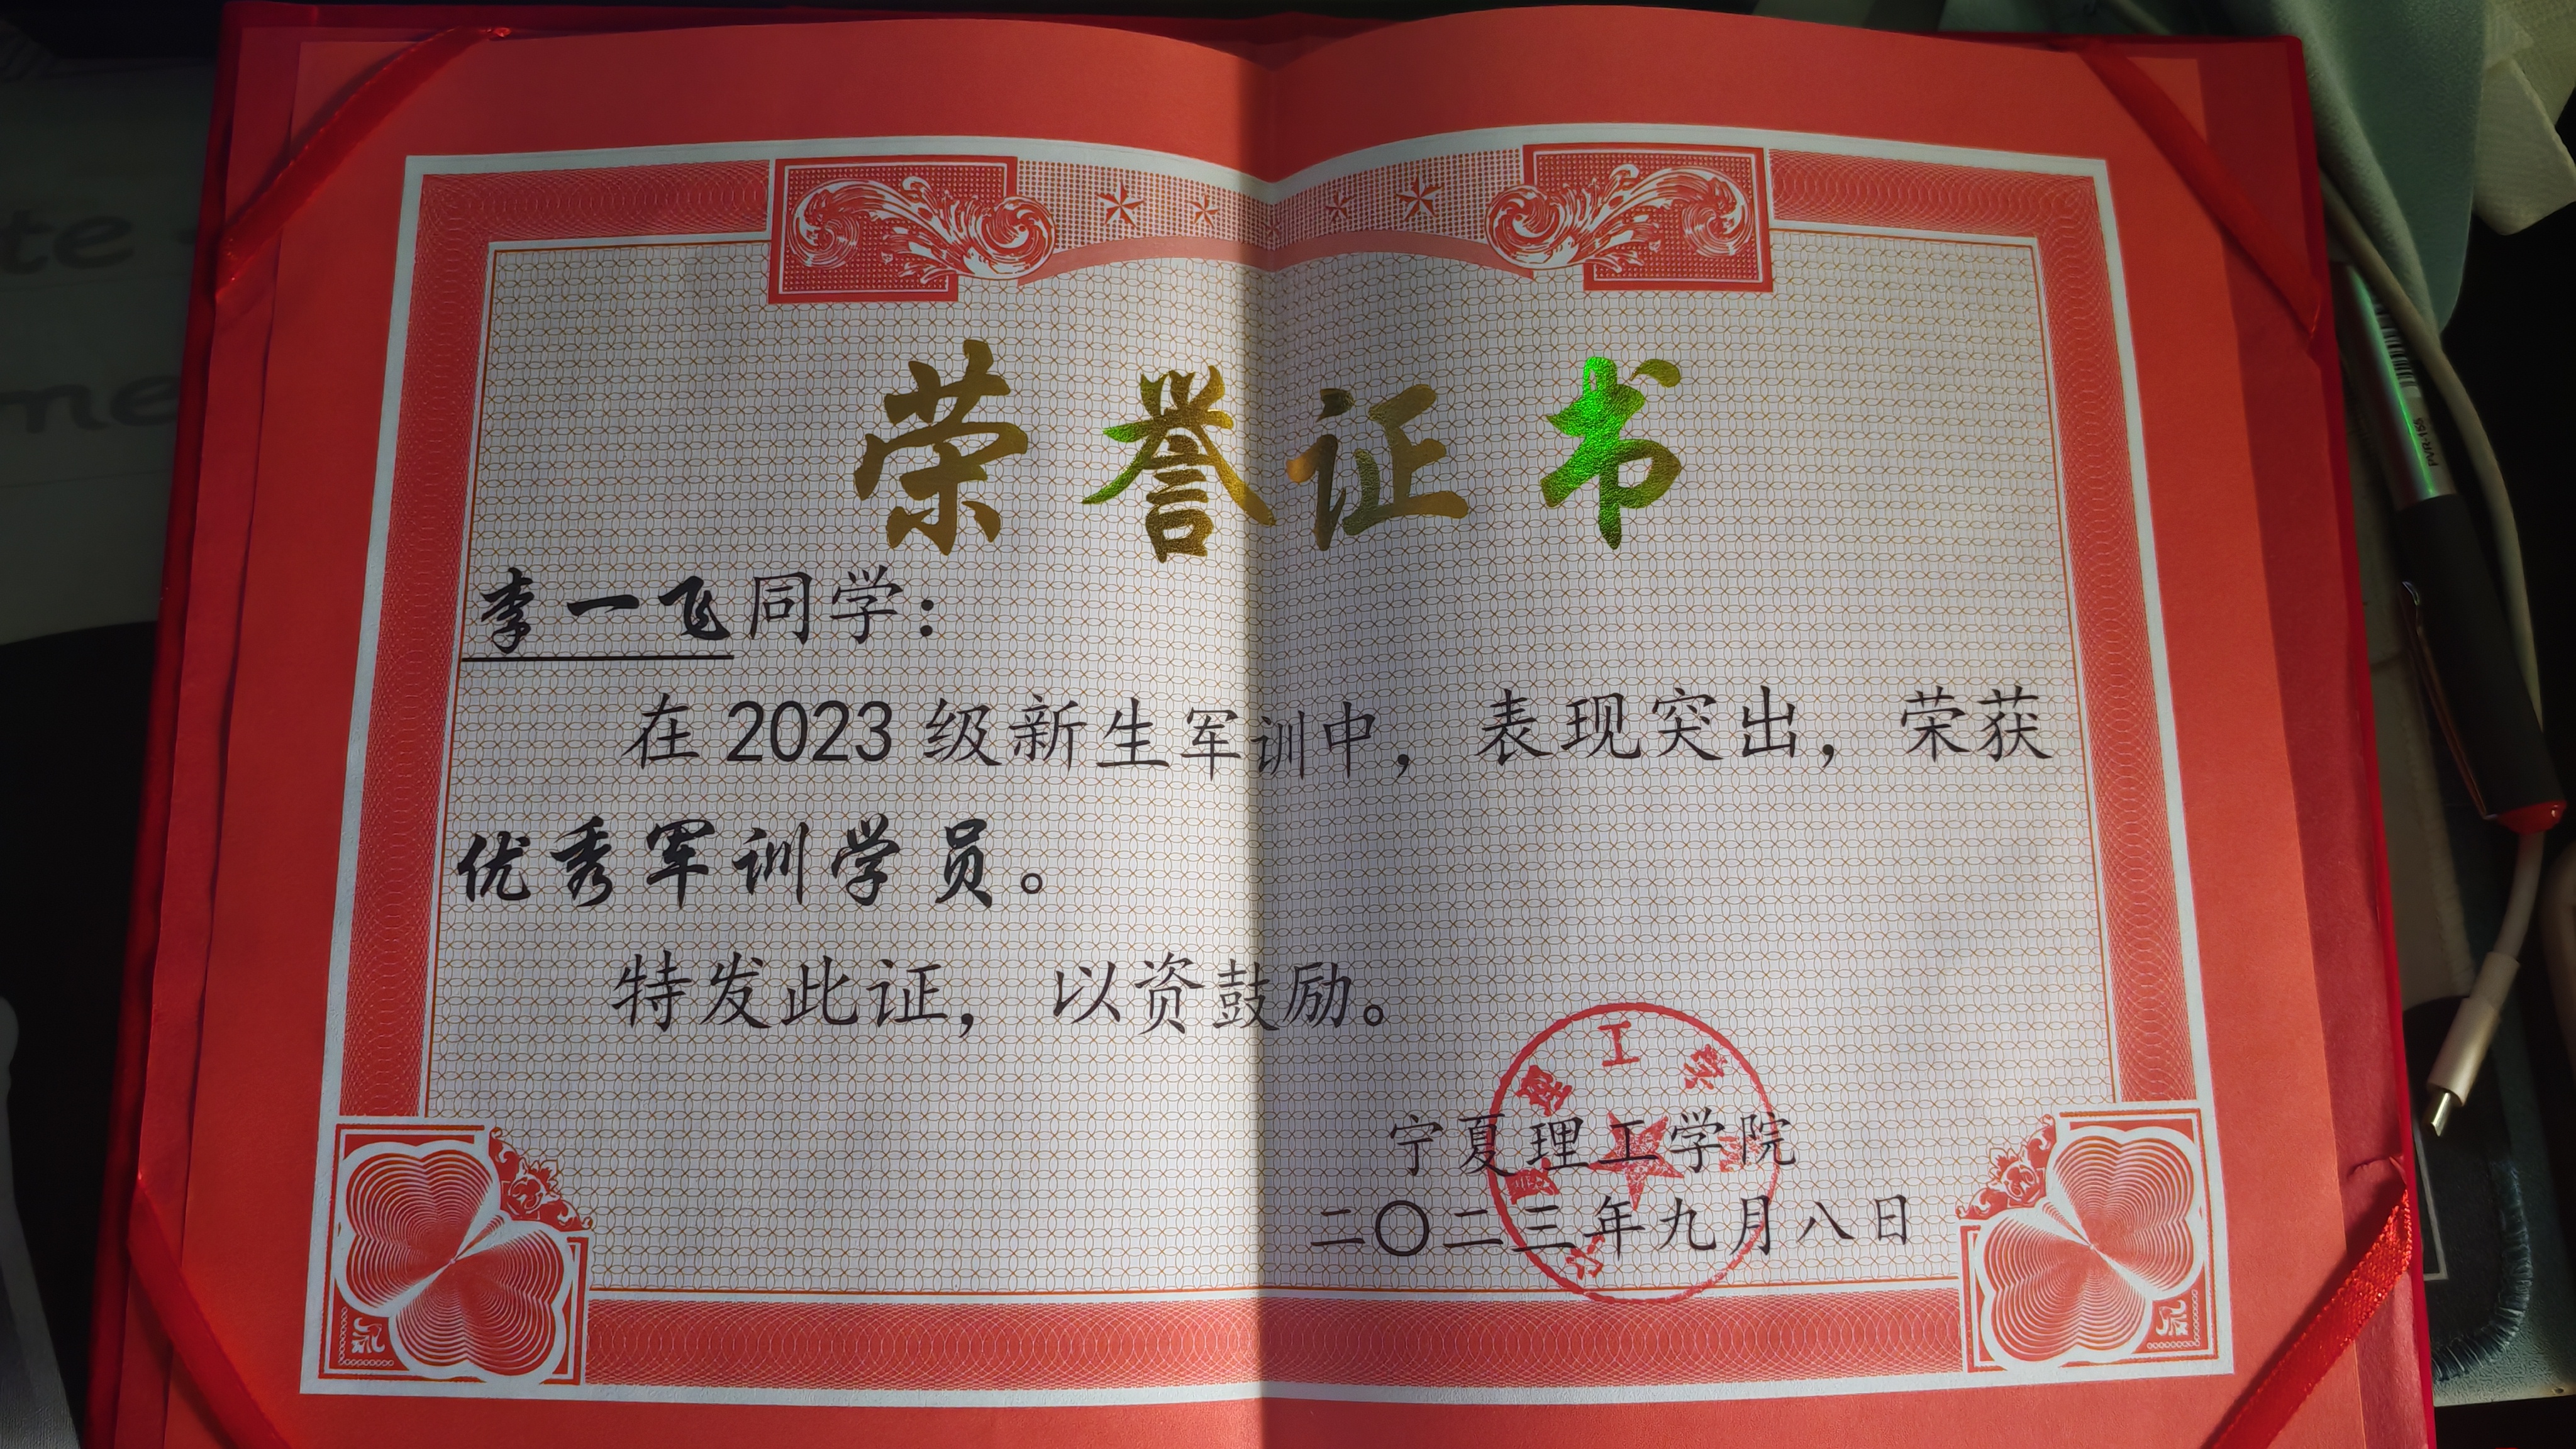 荣誉证书
李一飞同学：
在 2023 级新生军训中，表现突出，荣获
优秀军训学员。
特发此证，以资鼓励。
宁夏理工学院
二〇二三年九月八日
宁夏理工学院
te
me
PVR-155